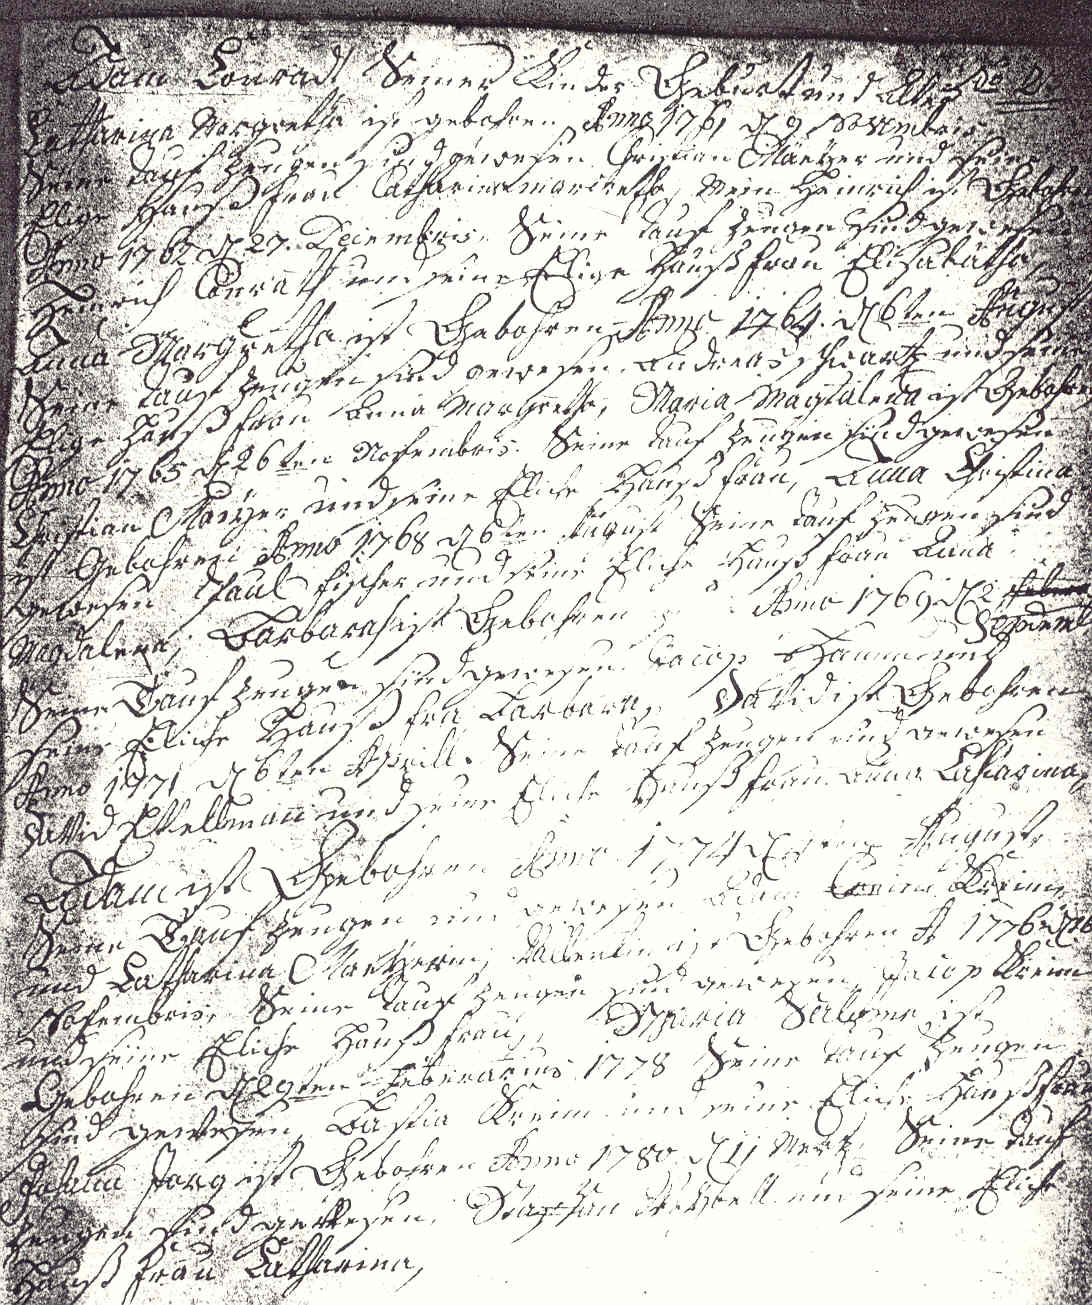 Adam Conradt Seiner Kinder Geburt und alter
Catharina Margretha ist gebohren Anno 1761 d 9 Novembris
Seine tauf Zeugen sind gewesen Christian Mäntzer und seine
Elige Hauß frau Catharina margreth, Mein Heinrich ist Gebohren
Anno 1762 d 27. Decembris. Seine tauf zeugen sind gewesen
Heinrich Conrath und seine Elige Hauß frau Elisabätha,
Anna Margretha ist Gebohren Anno 1764. d 6ten August
Seine tauf zeugen sind gewesen Andreas schwartz und seine
Elige Hauß frau Anna Margreth, Maria Magdalena ist Gebohren
Anno 1765 d 26ten Nofembris. Seine tauf zeugen sind gewesen
Christian Mäntzer und seine Eliche Hauß frau, Anna Christina
ist Gebohren Anno 1768 d 6ten August Seine tauf zeugen sind
gewesen Paul fischer und seine Eliche Hauß frau Anna
Magdalena, Barbara ist Gebohren Anno 1769 d 2
Septembr
Seine Tauf zeugen sind gewesen Jacop und
seine Eliche Hauß fra Barbara, David ist Gebohren
Anno 1771 d 6ten Aprill. Seine tauf zeugen sind gewesen
David und seine Eliche Hauß frau anna Catharina,
Adam ist Gebohren Anno 1774 d August
Seine Tauf zeugen sind gewesen Adam
und Catharina Mäntzerin, Vallentin ist Gebohren A 1776 d
Nofembris, Seine tauf zeugen sind gewesen Jacop
und seine Eliche Hauß frau, Maria Salome ist
Gebohren d 29ten Feberarius 1778 Seine tauf zeugen
sind gewesen, und seine Eliche Hauß frau
Johann Jorg ist Gebohren Anno 1780 d 11 Mertz, Seine tauf
zeugen sind gewesen, und seine Eliche
Hauß frau Catharina,